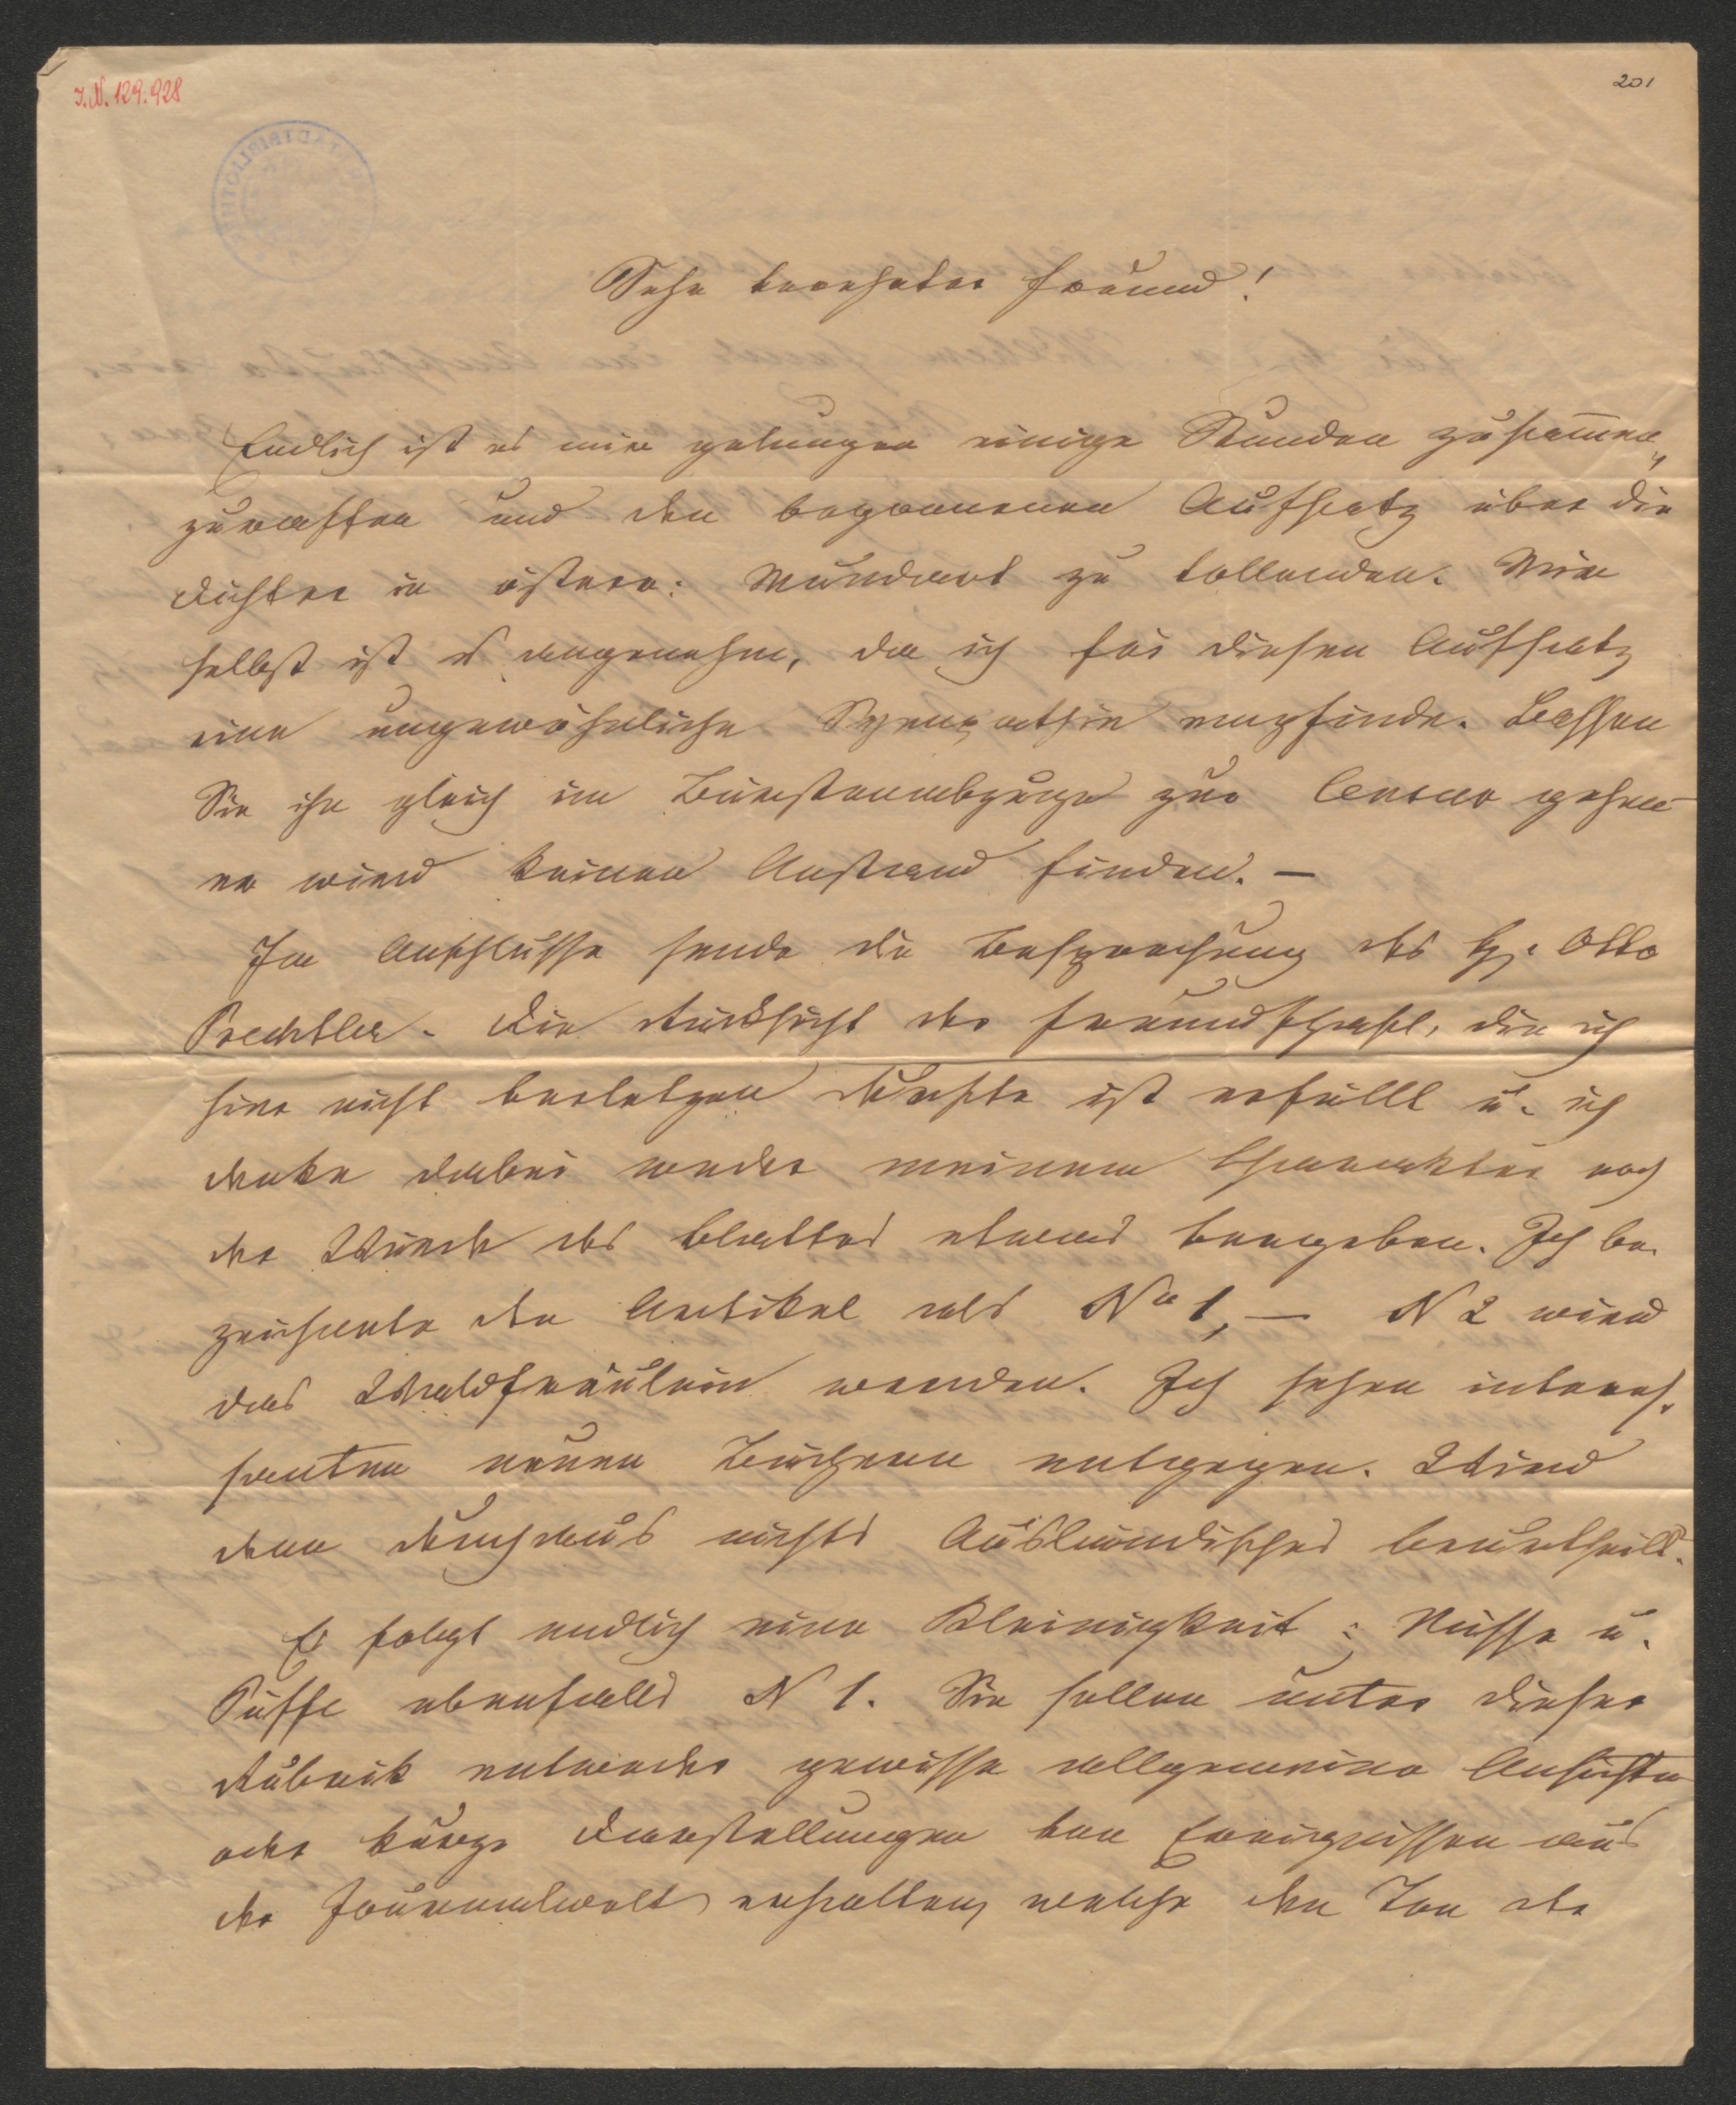 I.N. 129.928
201
Sehr verehrter Freund!
Endlich ist es mir gelungen einige Stunden zusam̅en
zuraffen und den begonnenen Aufsatz über die
Dichter in österr: Mundart zu vollenden. Mir
selbst ist es angenehm, da ich für diesen Aufsatz
eine ungewöhnliche Sympathie empfinde. Lassen
Sie ihn gleich im Bürstenabzuge zur Censur gehen
er wird keinen Anstand finden. —
Im Anschlusse sende die Besprechung des H. Otto
Prechtler. Die Rücksicht der Freundschaft, die ich
hier nicht verletzen durfte ist erfüllt u. ich
denke dabei weder meinem Charakter noch
der Würde des Blattes etwas vergeben. Ich be-
zeichnete den Artikel als No 1, — N 2 wird
das Waldfräulein werden. Ich sehen interes-
santen neuen Büchern entgegen. Wird
denn durchaus nichts Ausländisches beurtheilt.
Es folgt endlich eine Kleinigkeit: Nüsse u.
Püffe ebenfalls N 1. Sie sollen unter dieser
Rubrik entweder gewisse allgemeine Ansichten
oder kurze Darstellungen von Ereignissen aus
der Journalwelt erhalten, welche den Ton der